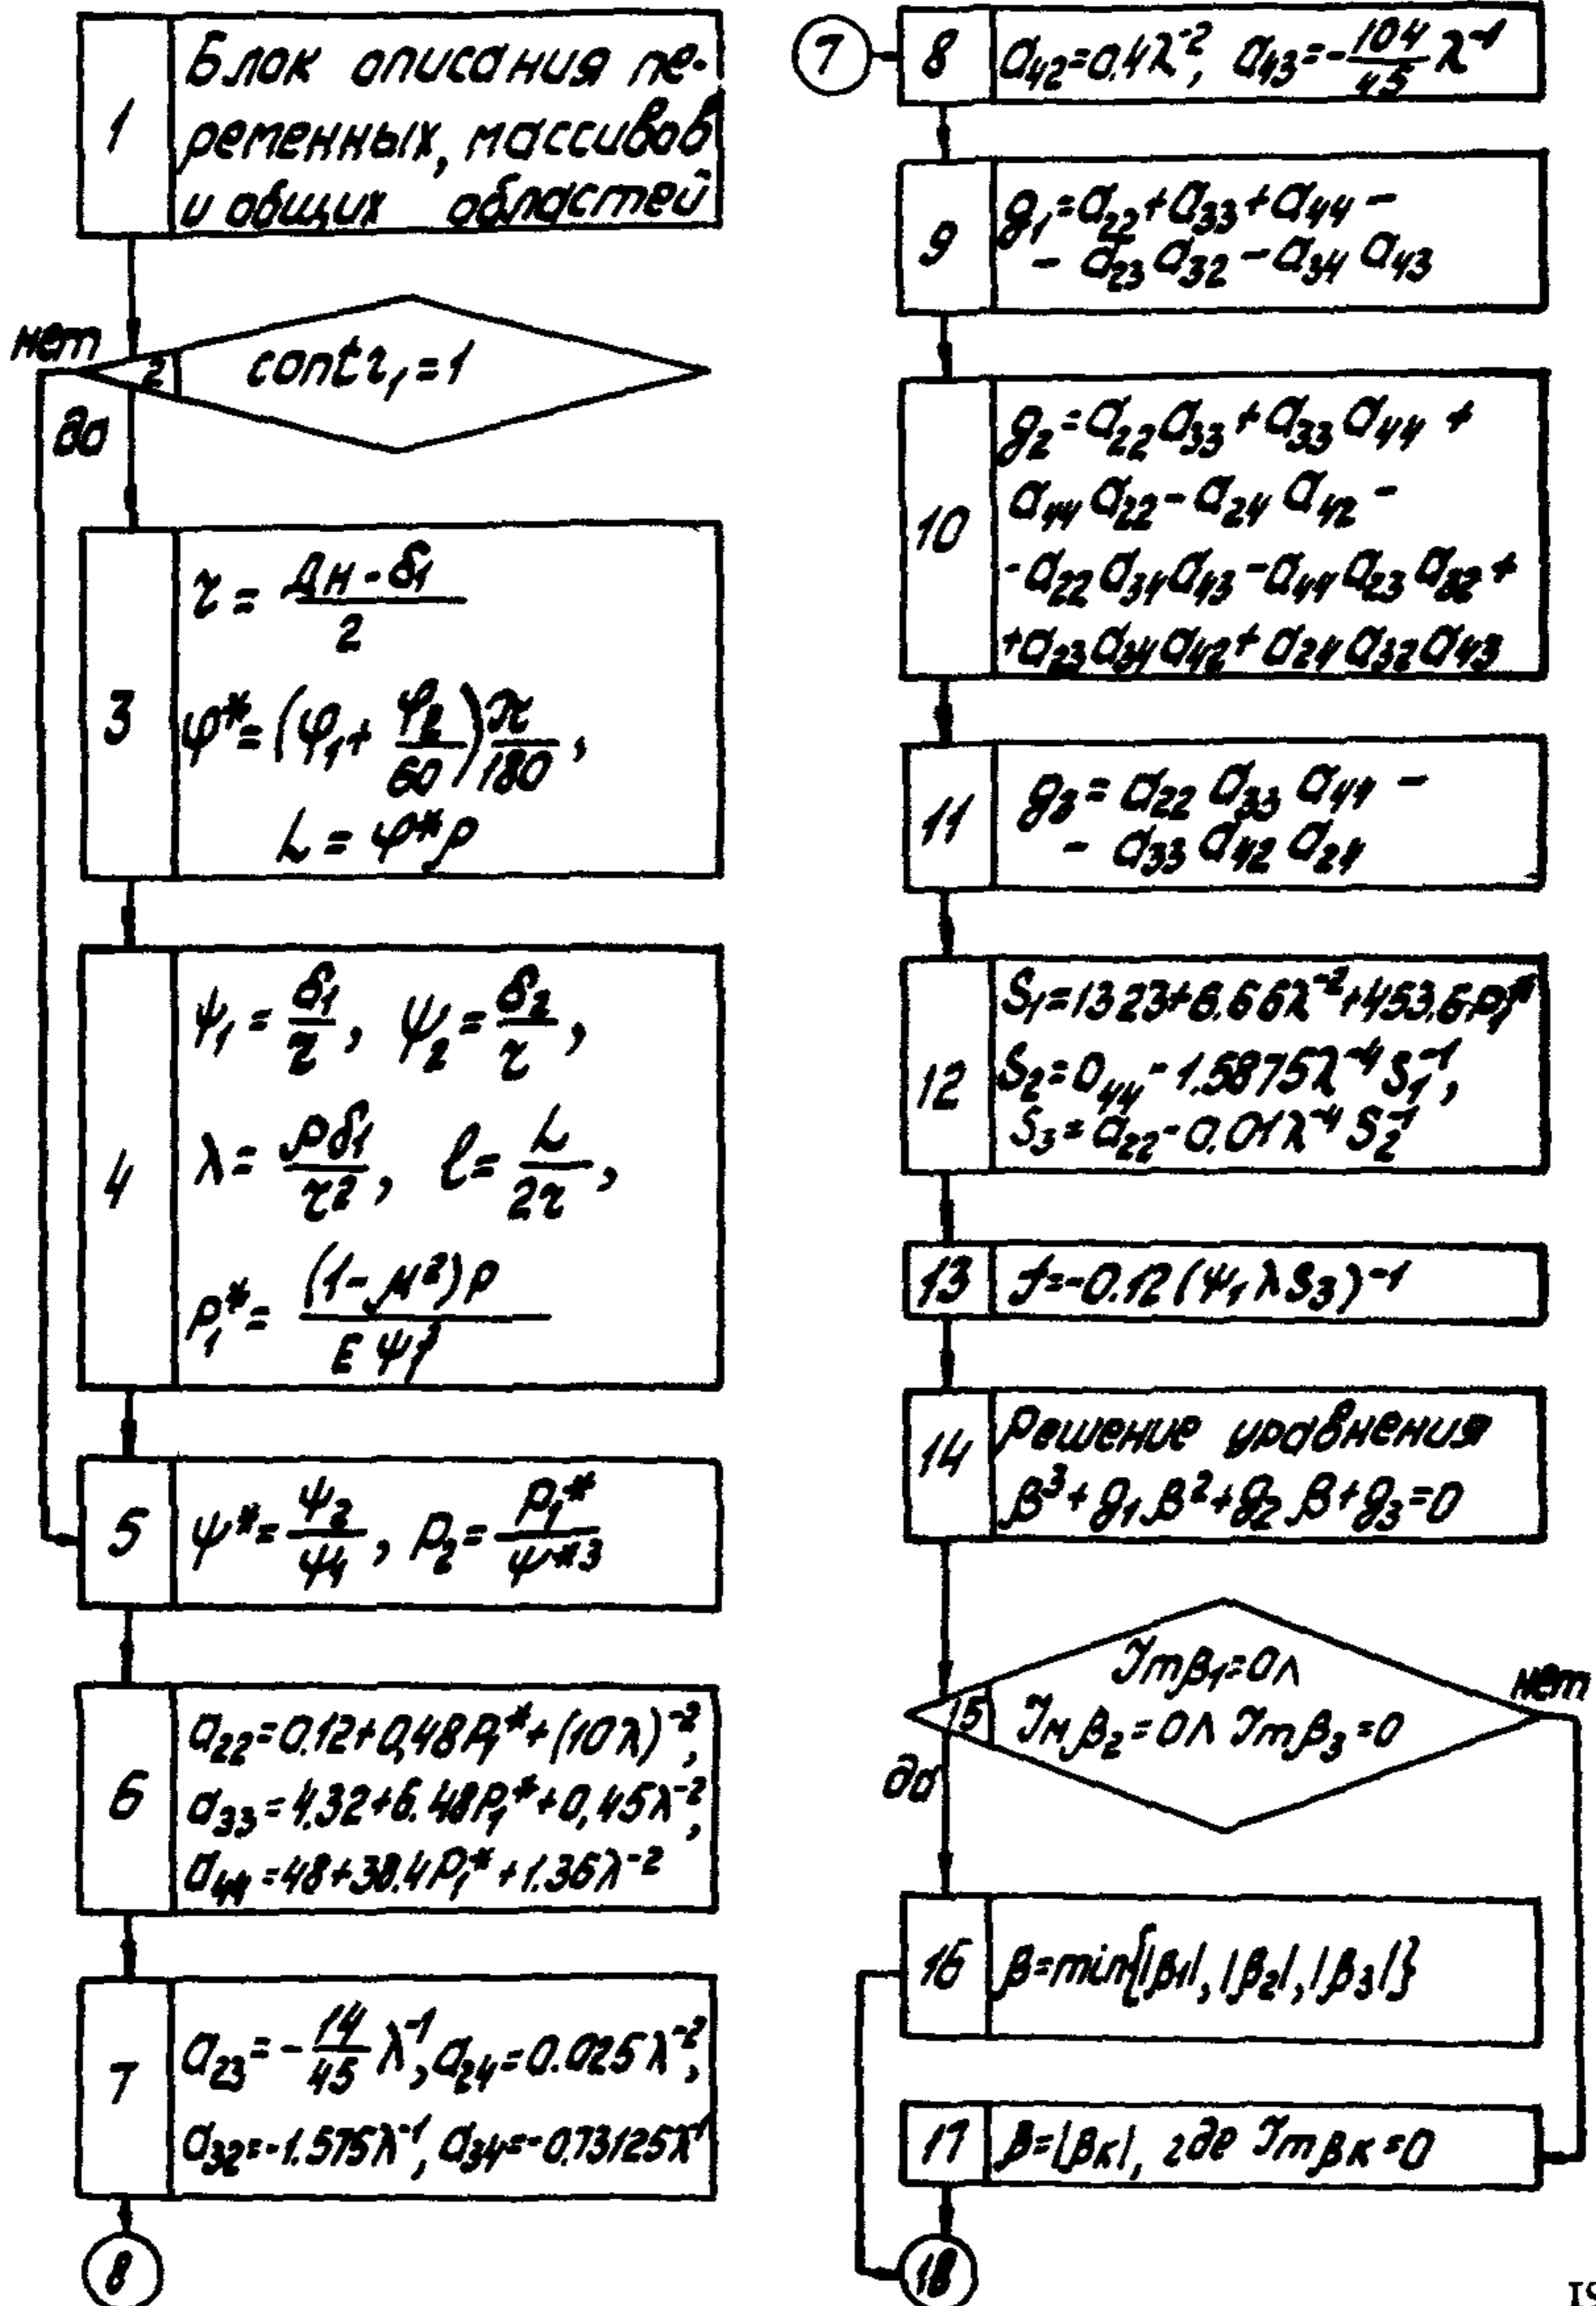 1
Блок описания пе-
ременных, массивов
и общих областей
нет
2
contr₁=1
да
3
r = (Дн - δ₁)/2
φ* = (φ₁ + φ₂/60) π/180,
L = φ*ρ
4
ψ₁ = δ₁/r, ψ₂ = δ₂/r,
λ = ρδ₁/r², l = L/2r,
P₁* = (1-μ²)P/Eψ₁³
5
ψ* = ψ₂/ψ₁, P₂ = P₁*/ψ*³
6
a₂₂=0.12+0,48P₁*+(10λ)⁻²,
a₃₃=4.32+6.48P₁*+0,45λ⁻²,
a₄₄=48+38.4P₁*+1.36λ⁻²
7
a₂₃=-14/45 λ⁻¹, a₂₄=0.025λ⁻²,
a₃₂=-1.575λ⁻¹, a₃₄=-0.73125λ⁻¹
8
7
8
a₄₂=0.4λ⁻², a₄₃=-104/45 λ⁻¹
9
g₁=a₂₂+a₃₃+a₄₄-
- a₂₃a₃₂-a₃₄a₄₃
10
g₂=a₂₂a₃₃+a₃₃a₄₄+
a₄₄a₂₂-a₂₄a₄₂-
-a₂₂a₃₄a₄₃-a₄₄a₂₃a₃₂+
+a₂₃a₃₄a₄₂+a₂₄a₃₂a₄₃
11
g₃=a₂₂a₃₃a₄₄-
- a₃₃a₄₂a₂₄
12
S₁=1323+6.66λ⁻²+453.6P₁*
S₂=a₄₄-1.5875λ⁻⁴S₁⁻¹,
S₃=a₂₂-0.01λ⁻⁴S₂⁻¹
13
f=-0.12(ψ₁λS₃)⁻¹
14
Решение уравнения
β³+g₁β²+g₂β+g₃=0
15
Imβ₁=0∧
Imβ₂=0∧ Imβ₃=0
нет
да
16
β=min{|β₁|, |β₂|, |β₃|}
17
β=|βк|, где Imβк=0
18